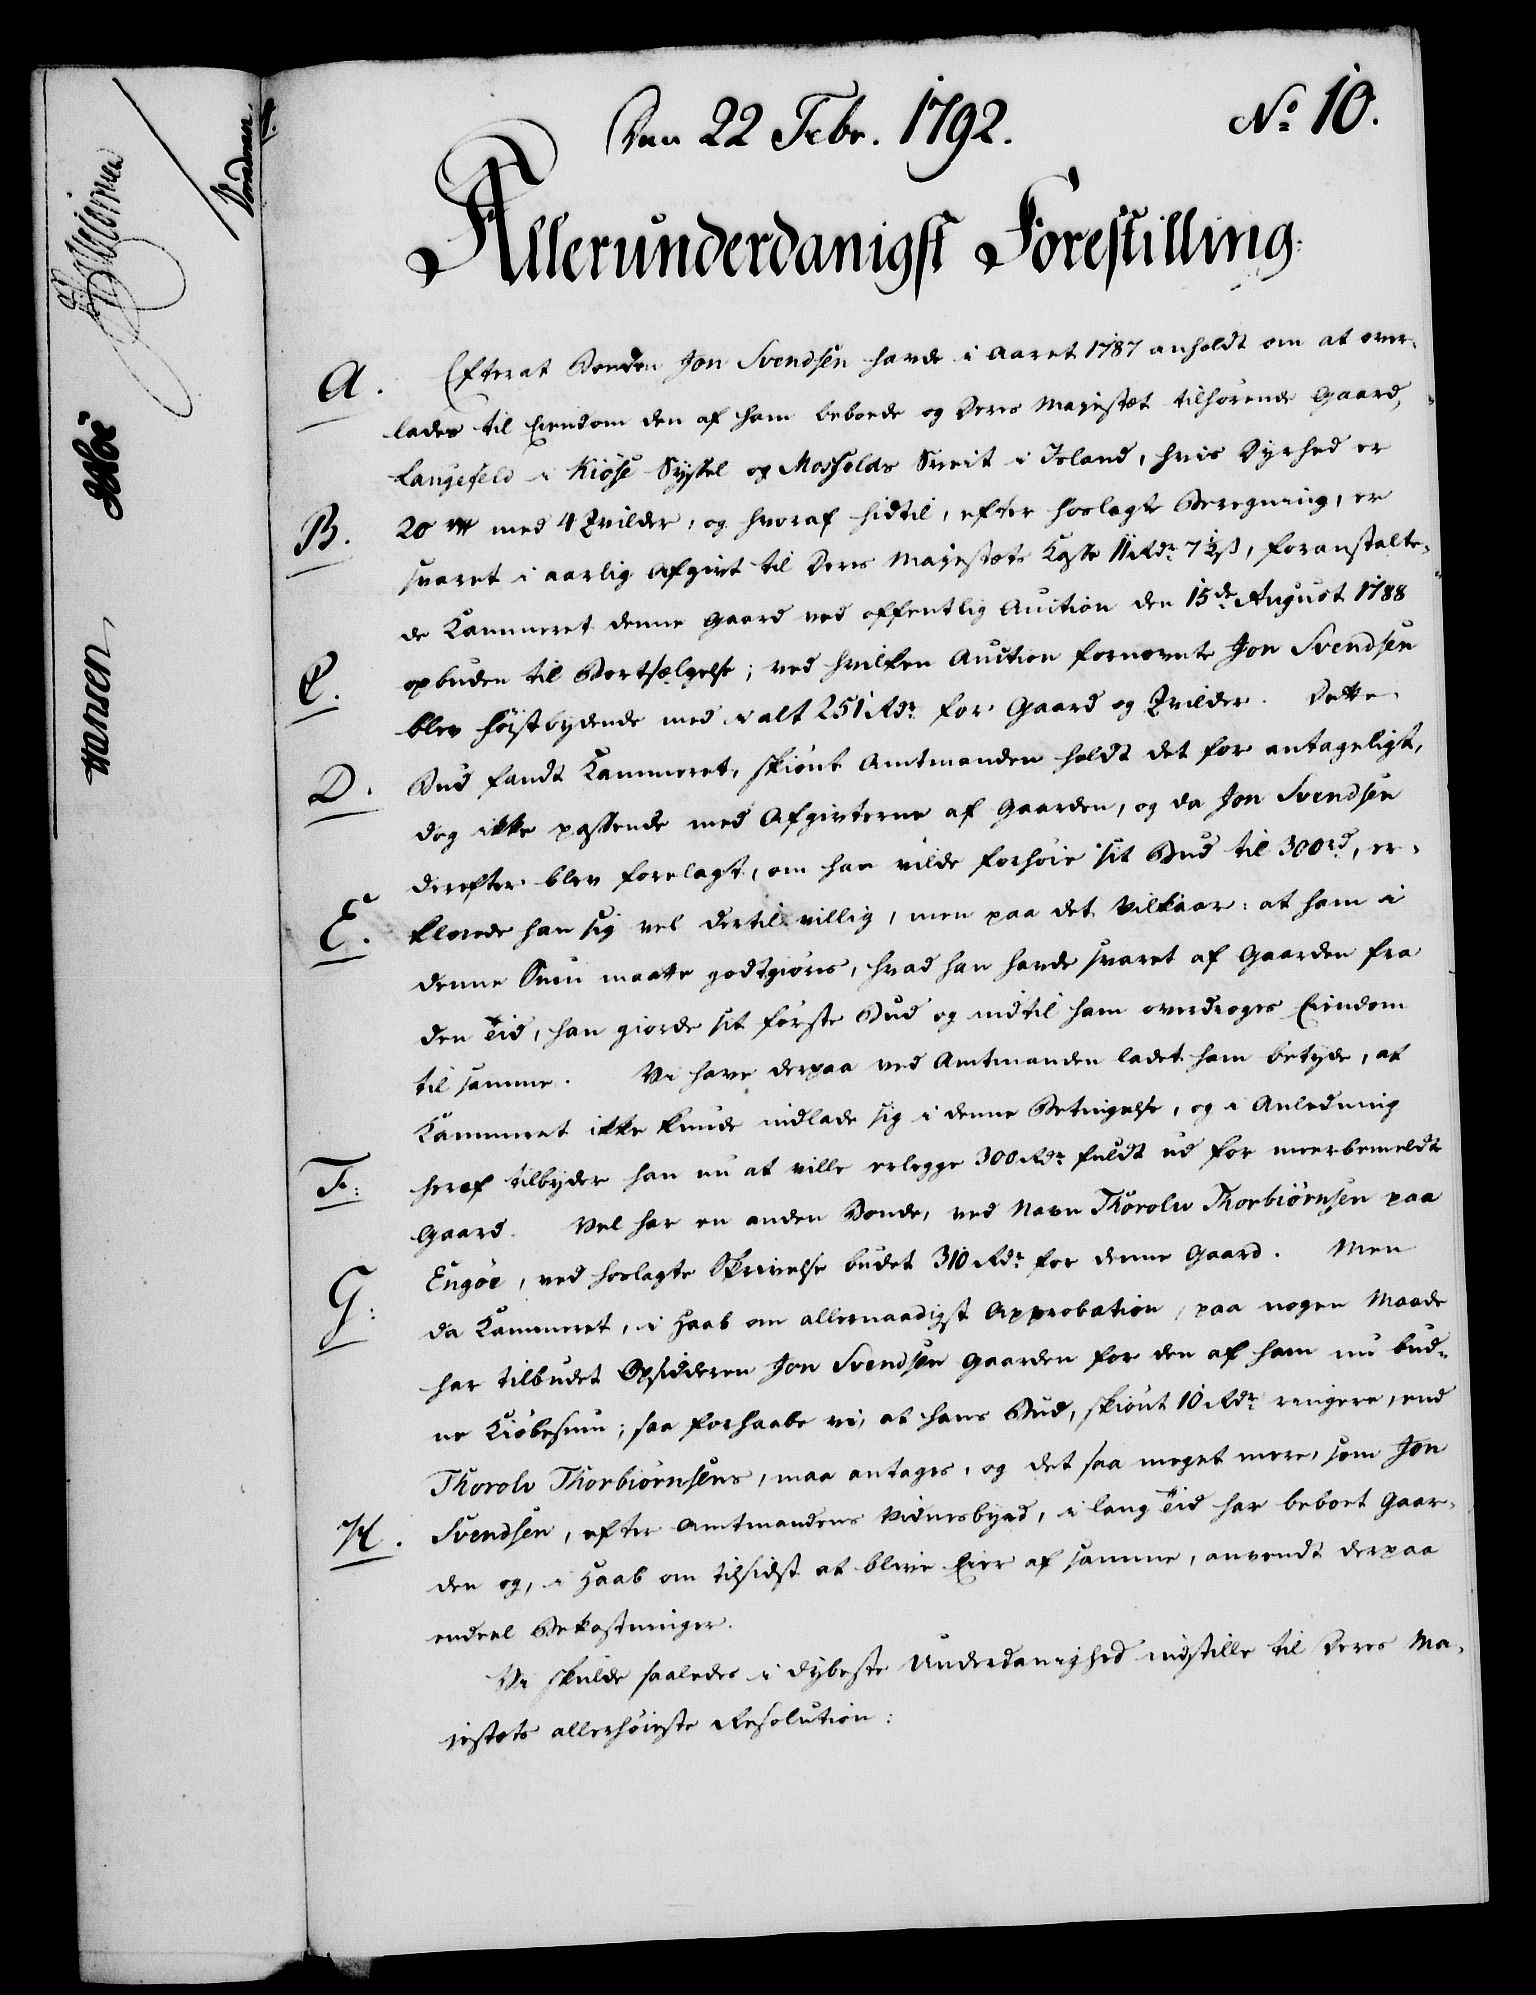 Den 22 Febr. 1792.
No 10.
Allerunderdanigst Forestilling:
A. Efterat Bonden Jon Svendsen havde i Aaret 1787 anholdt om at over-
lades til Eiendom den af ham beboede og Deres Majestæt tilhørende Gaard,
Langefeld i Kiöse Syssel og Mosfelds Sveit i Island, hvis Dyrhed er
B. 20 med 4 Qvilder, og hvoraf hidtil, efter hoslagte Beregning, er
svaret i aarlig Afgivt til Deres Majestæts Kasse 11 Rdr 7½ ß, foranstalte-
de Kammeret denne Gaard ved offentlig Auction den 15de August 1788
C. opbuden til Bortsælgelse; ved hvilken Auction fornævnte Jon Svendsen
blev høistbydende med i alt 251 Rdr for Gaard og Qvilder. Dette
D. Bud fandt Kammeret, skiönt Amtmanden holdt det for antageligt,
dog ikke passende med Afgivterne af Gaarden, og da Jon Svendsen
derefter blev forelagt, om han vilde forhöie sit Bud til 300 rd, er-
E. klærede han sig vel dertil villig, men paa det Vilkaar: at ham i
denne Sum maatte godtgiöres, hvad han havde svaret af Gaarden fra
den Tid, han giorde sit förste Bud og indtil ham overdroges Eiendom
til samme. Vi have derpaa ved Amtmanden ladet ham betyde, at
Kammeret ikke kunde indlade sig i denne Betingelse, og i Anledning
F: heraf tilbyder han nu at ville erlegge 300 Rdr fuldt ud for meerbemeldte
Gaard. Vel har en anden Bonde, ved Navn Thorolv Thorbiörnsen paa
G: Engöe, ved hoslagte Skrivelse budet 310 Rdr for denne Gaard. Men
da Kammeret, i Haab om allernaadigst Approbation, paa nogen Maade
har tilbudet Opsidderen Jon Svendsen Gaarden for den af ham nu bud-
ne Kiöbesum; saa forhaabe vi, at hans Bud, skiönt 10 Rdr ringere, end
Thorolv Thorbiörnsens, maa antages, og det saa meget mere, som Jon
H. Svendsen, efter Amtmandens Vidnesbyrd, i lang Tid har beboet Gaar-
den og, i Haab om tilsidst at blive Eier af samme, anvendt derpaa
endeel Bekostninger.
Vi skulde saaledes i dybeste Underdanighed indstille til Deres Ma-
jestæts allerhöieste Resolution: